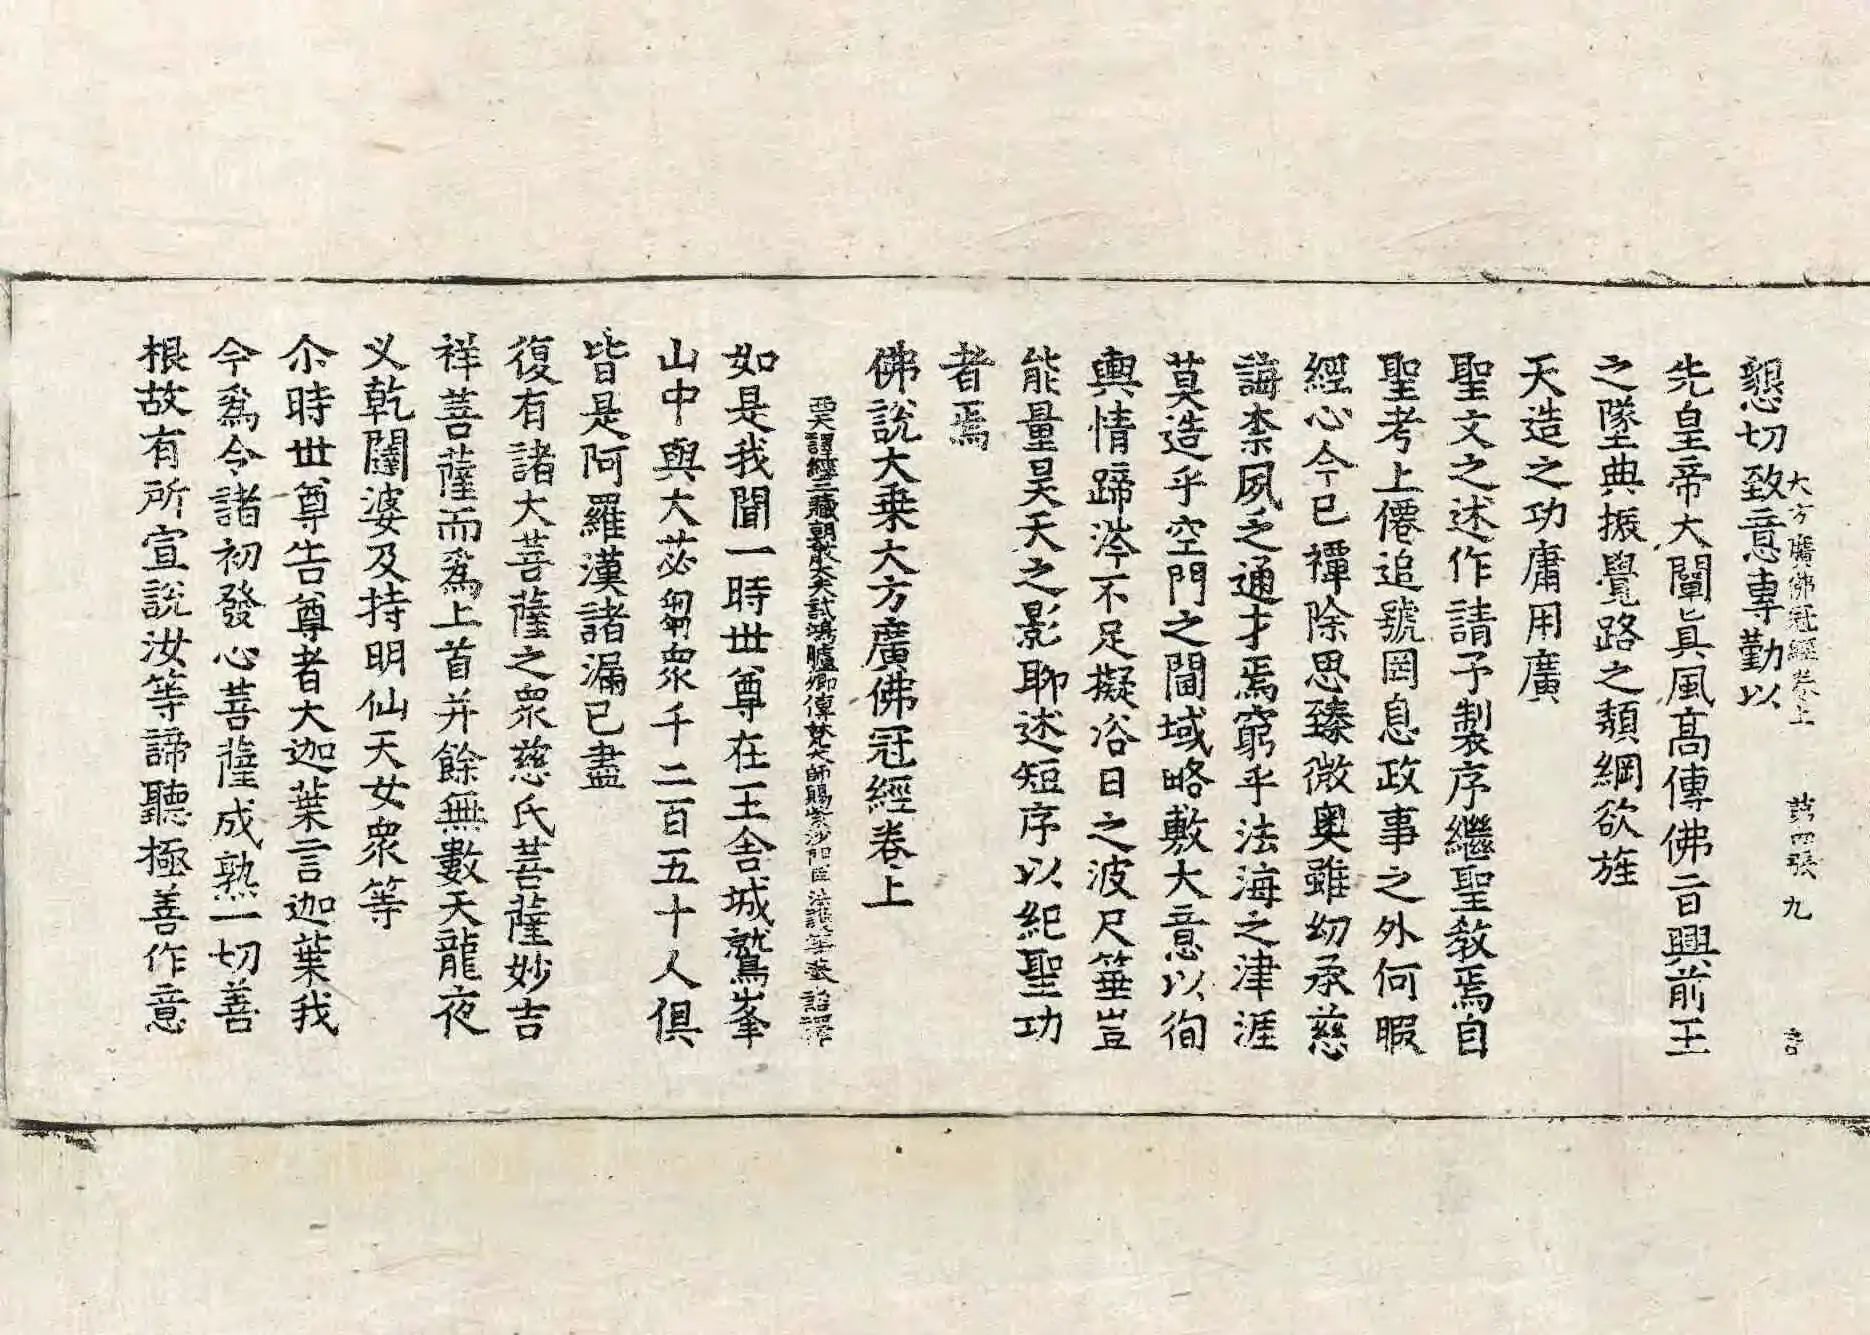 大方廣佛冠經卷上 第四張 九 言
懇切致意專勤以
先皇帝大闡真風高傳佛旨興前王
之墜典振覺路之頹綱欲旌
天造之功庸用廣
聖文之述作請予製序繼聖教焉自
聖考上僊追號罔息政事之外何暇
經心今已禫除思臻微奧雖幼承慈
誨柰夙乏通才焉窮乎法海之津涯
莫造乎空門之閫域略敷大意以徇
輿情蹄涔不足擬浴日之波尺箠豈
能量昊天之影聊述短序以紀聖功
者焉
佛說大乗大方廣佛冠經卷上
西天譯經三藏朝散大夫試鴻臚卿傳梵大師賜紫沙門臣法護等奉詔譯
如是我聞一時世尊在王舍城鷲峯
山中與大苾芻眾千二百五十人俱
皆是阿羅漢諸漏已盡
復有諸大菩薩之眾慈氏菩薩妙吉
祥菩薩而爲上首并餘無數天龍夜
叉乾闥婆及持明仙天女眾等
尒時世尊告尊者大迦葉言迦葉我
今爲令諸初發心菩薩成熟一切善
根故有所宣說汝等諦聽極善作意